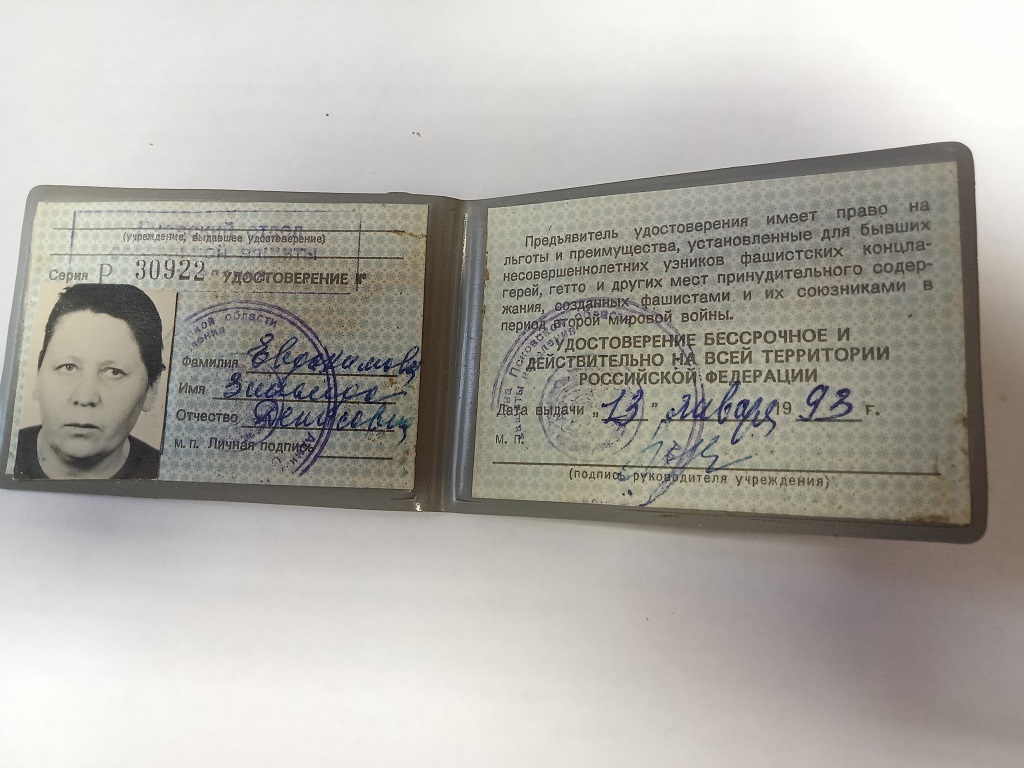 (учреждение, выдавшее удостоверение)
Серия Р 30922 УДОСТОВЕРЕНИЕ №
Фамилия Евдокимова
Имя Зинаида
Отчество Денисовна
м. п. Личная подпись
Предъявитель удостоверения имеет право на
льготы и преимущества, установленные для бывших
несовершеннолетних узников фашистских концла-
герей, гетто и других мест принудительного содер-
жания, созданных фашистами и их союзниками в
период второй мировой войны.
УДОСТОВЕРЕНИЕ БЕССРОЧНОЕ И
ДЕЙСТВИТЕЛЬНО НА ВСЕЙ ТЕРРИТОРИИ
РОССИЙСКОЙ ФЕДЕРАЦИИ
Дата выдачи „13" января 1993 г.
М. п.
(подпись руководителя учреждения)